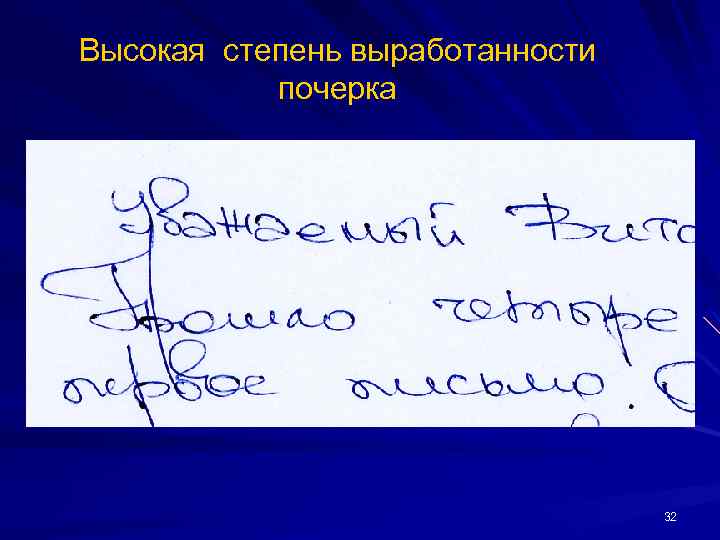 Высокая степень выработанности
почерка
Уважаемый Вита
Прошло четыре
первое письмо. С
32